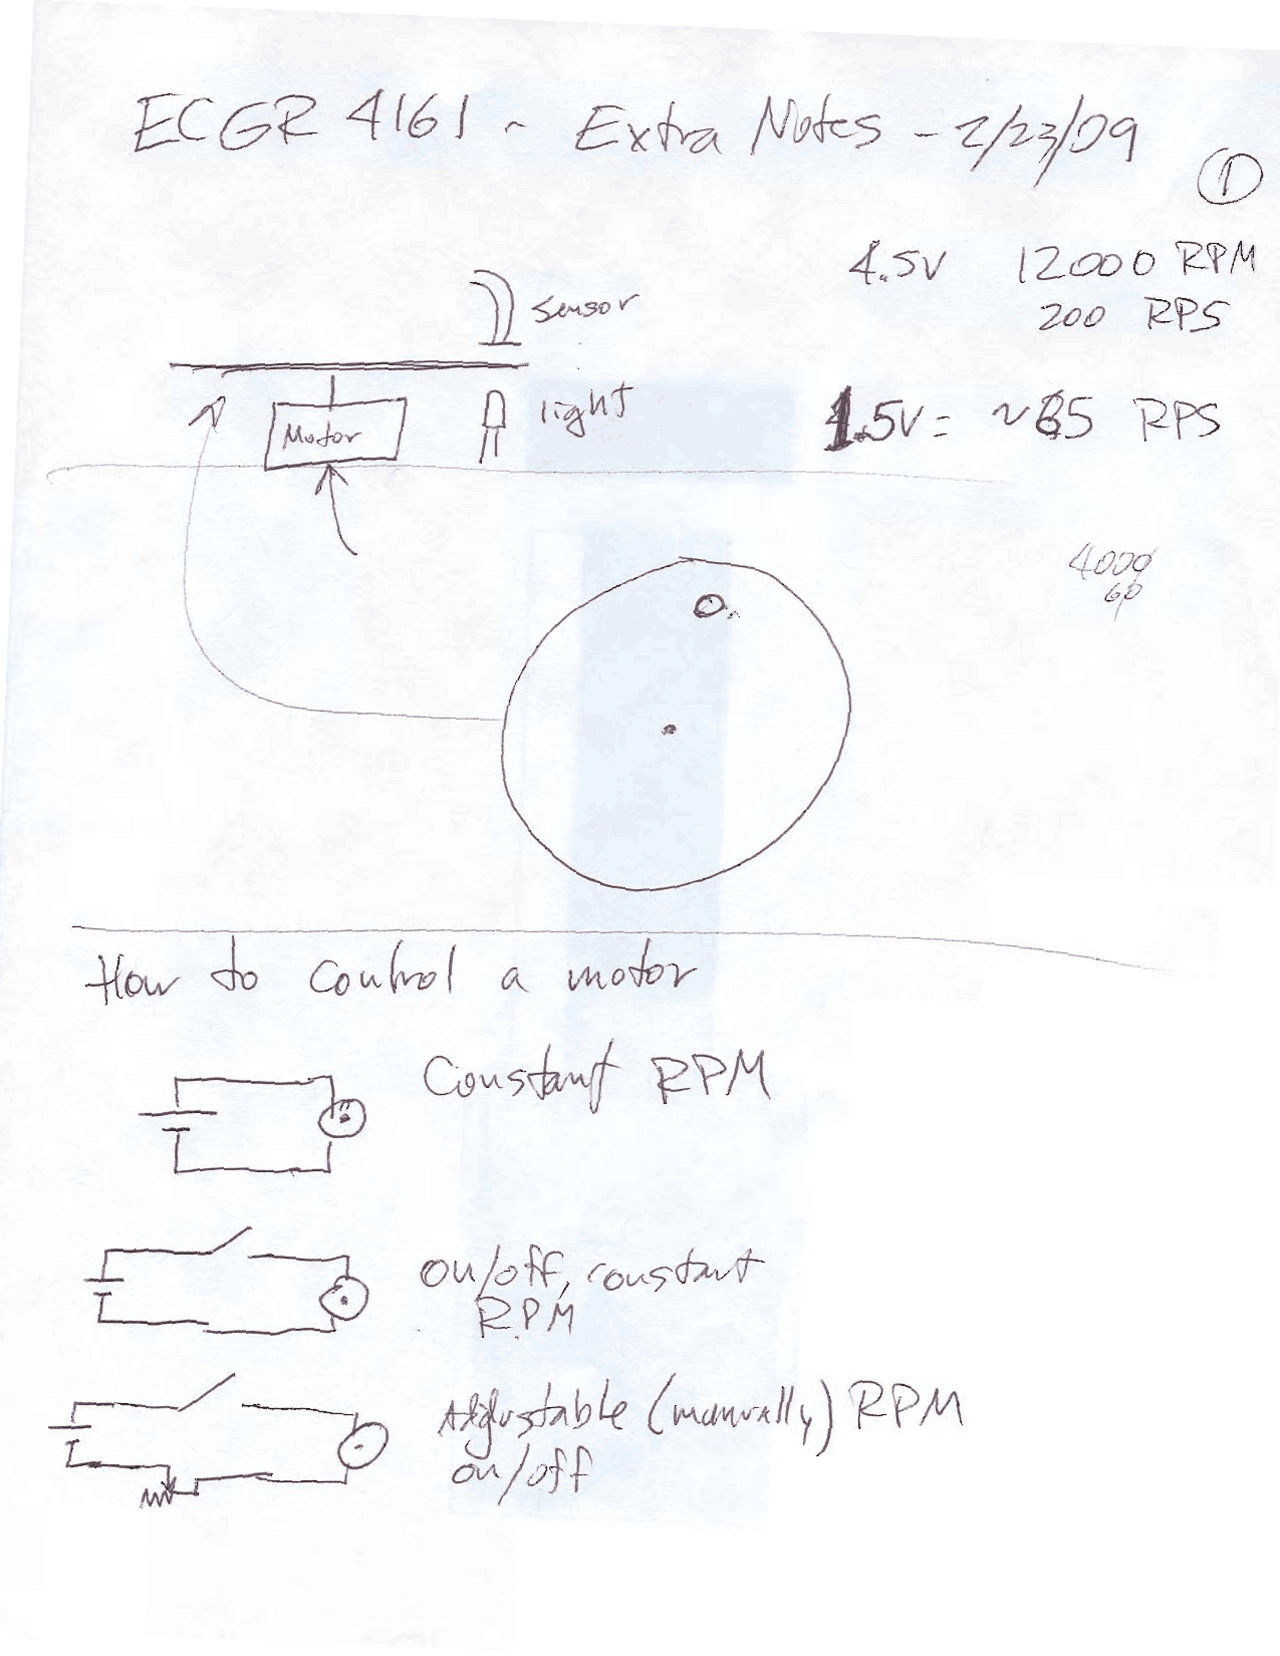 ECGR 4161 - Extra Notes - 2/23/09
1
4.5V 12000 RPM
200 RPS
sensor
light
Motor
1.5V = ~65 RPS
4000
60
How to control a motor
Constant RPM
on/off, constant
RPM
Adjustable (manually) RPM
on/off